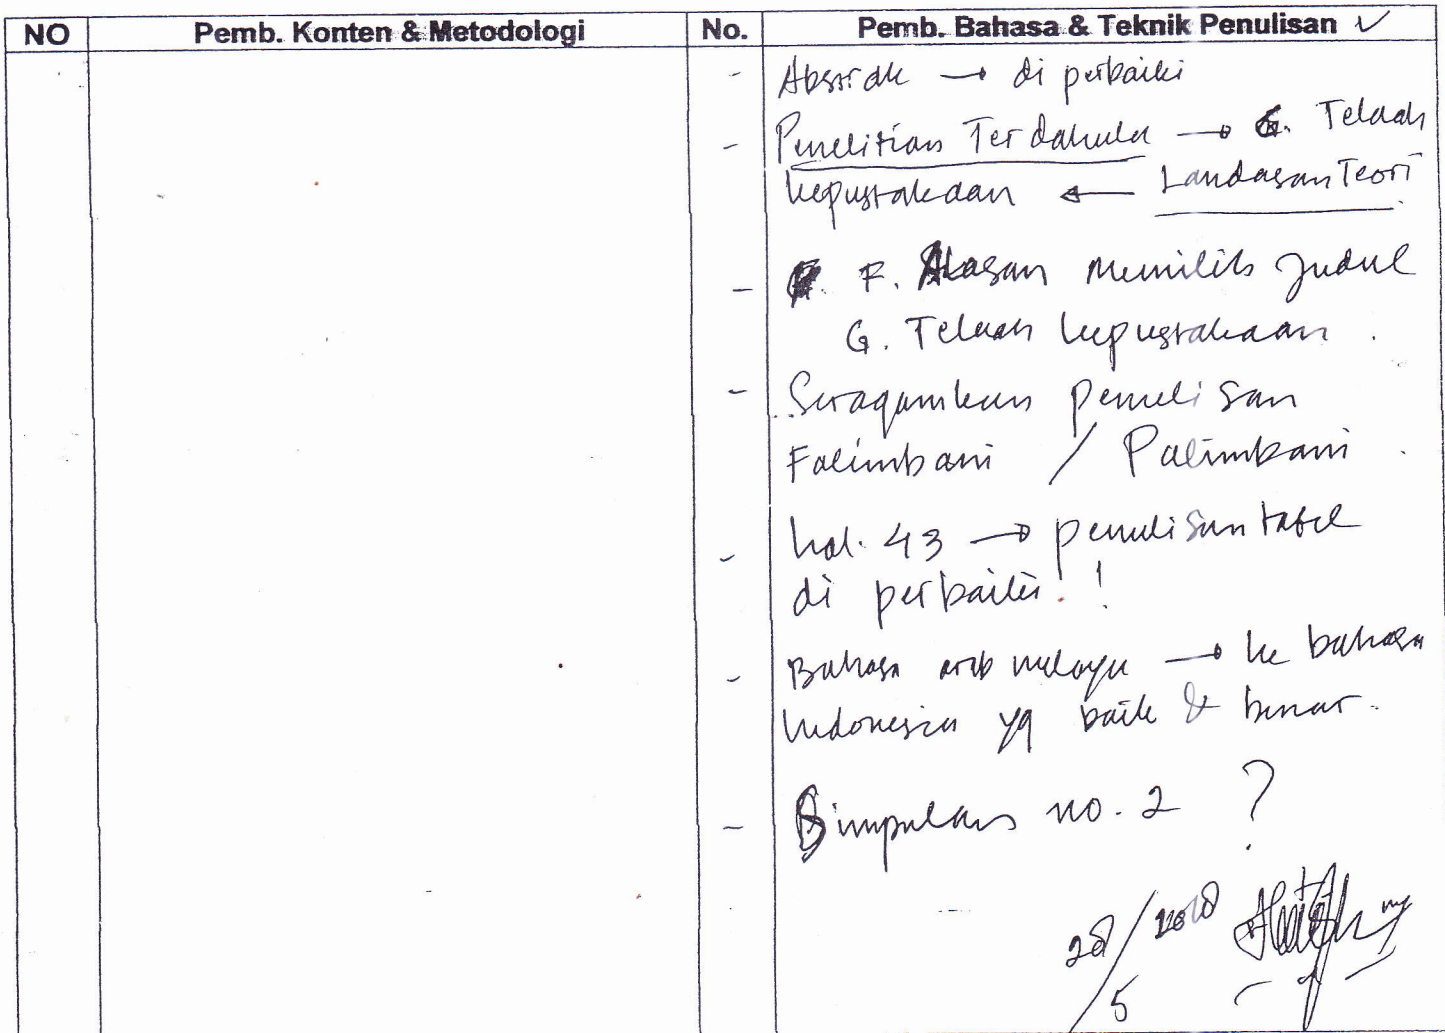 NO Pemb. Konten & Metodologi No. Pemb. Bahasa & Teknik Penulisan ✓
- Absrak → di perbaiki
- Penelitian Terdahulu → G. Telaah
kepustakaan ← Landasan Teori
- F. Alasan Memilih Judul
G. Telaah kepustakaan.
- Seragamkan penulisan
Falimbani / Palimbani.
- hal. 43 → penulisan tabel
di perbaiki !
- Bahasa arab melayu → ke bahasa
Indonesia yg baik & benar.
- Simpulan no. 2 ?
28/5 2018